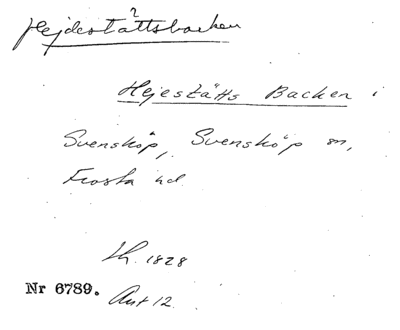 ?
Hejdestättsbacken
Hejestätts Backen i
Svensköp, Svensköp sn,
Frosta hd.
Lh. 1828
Nr 6789.
Akt 12.